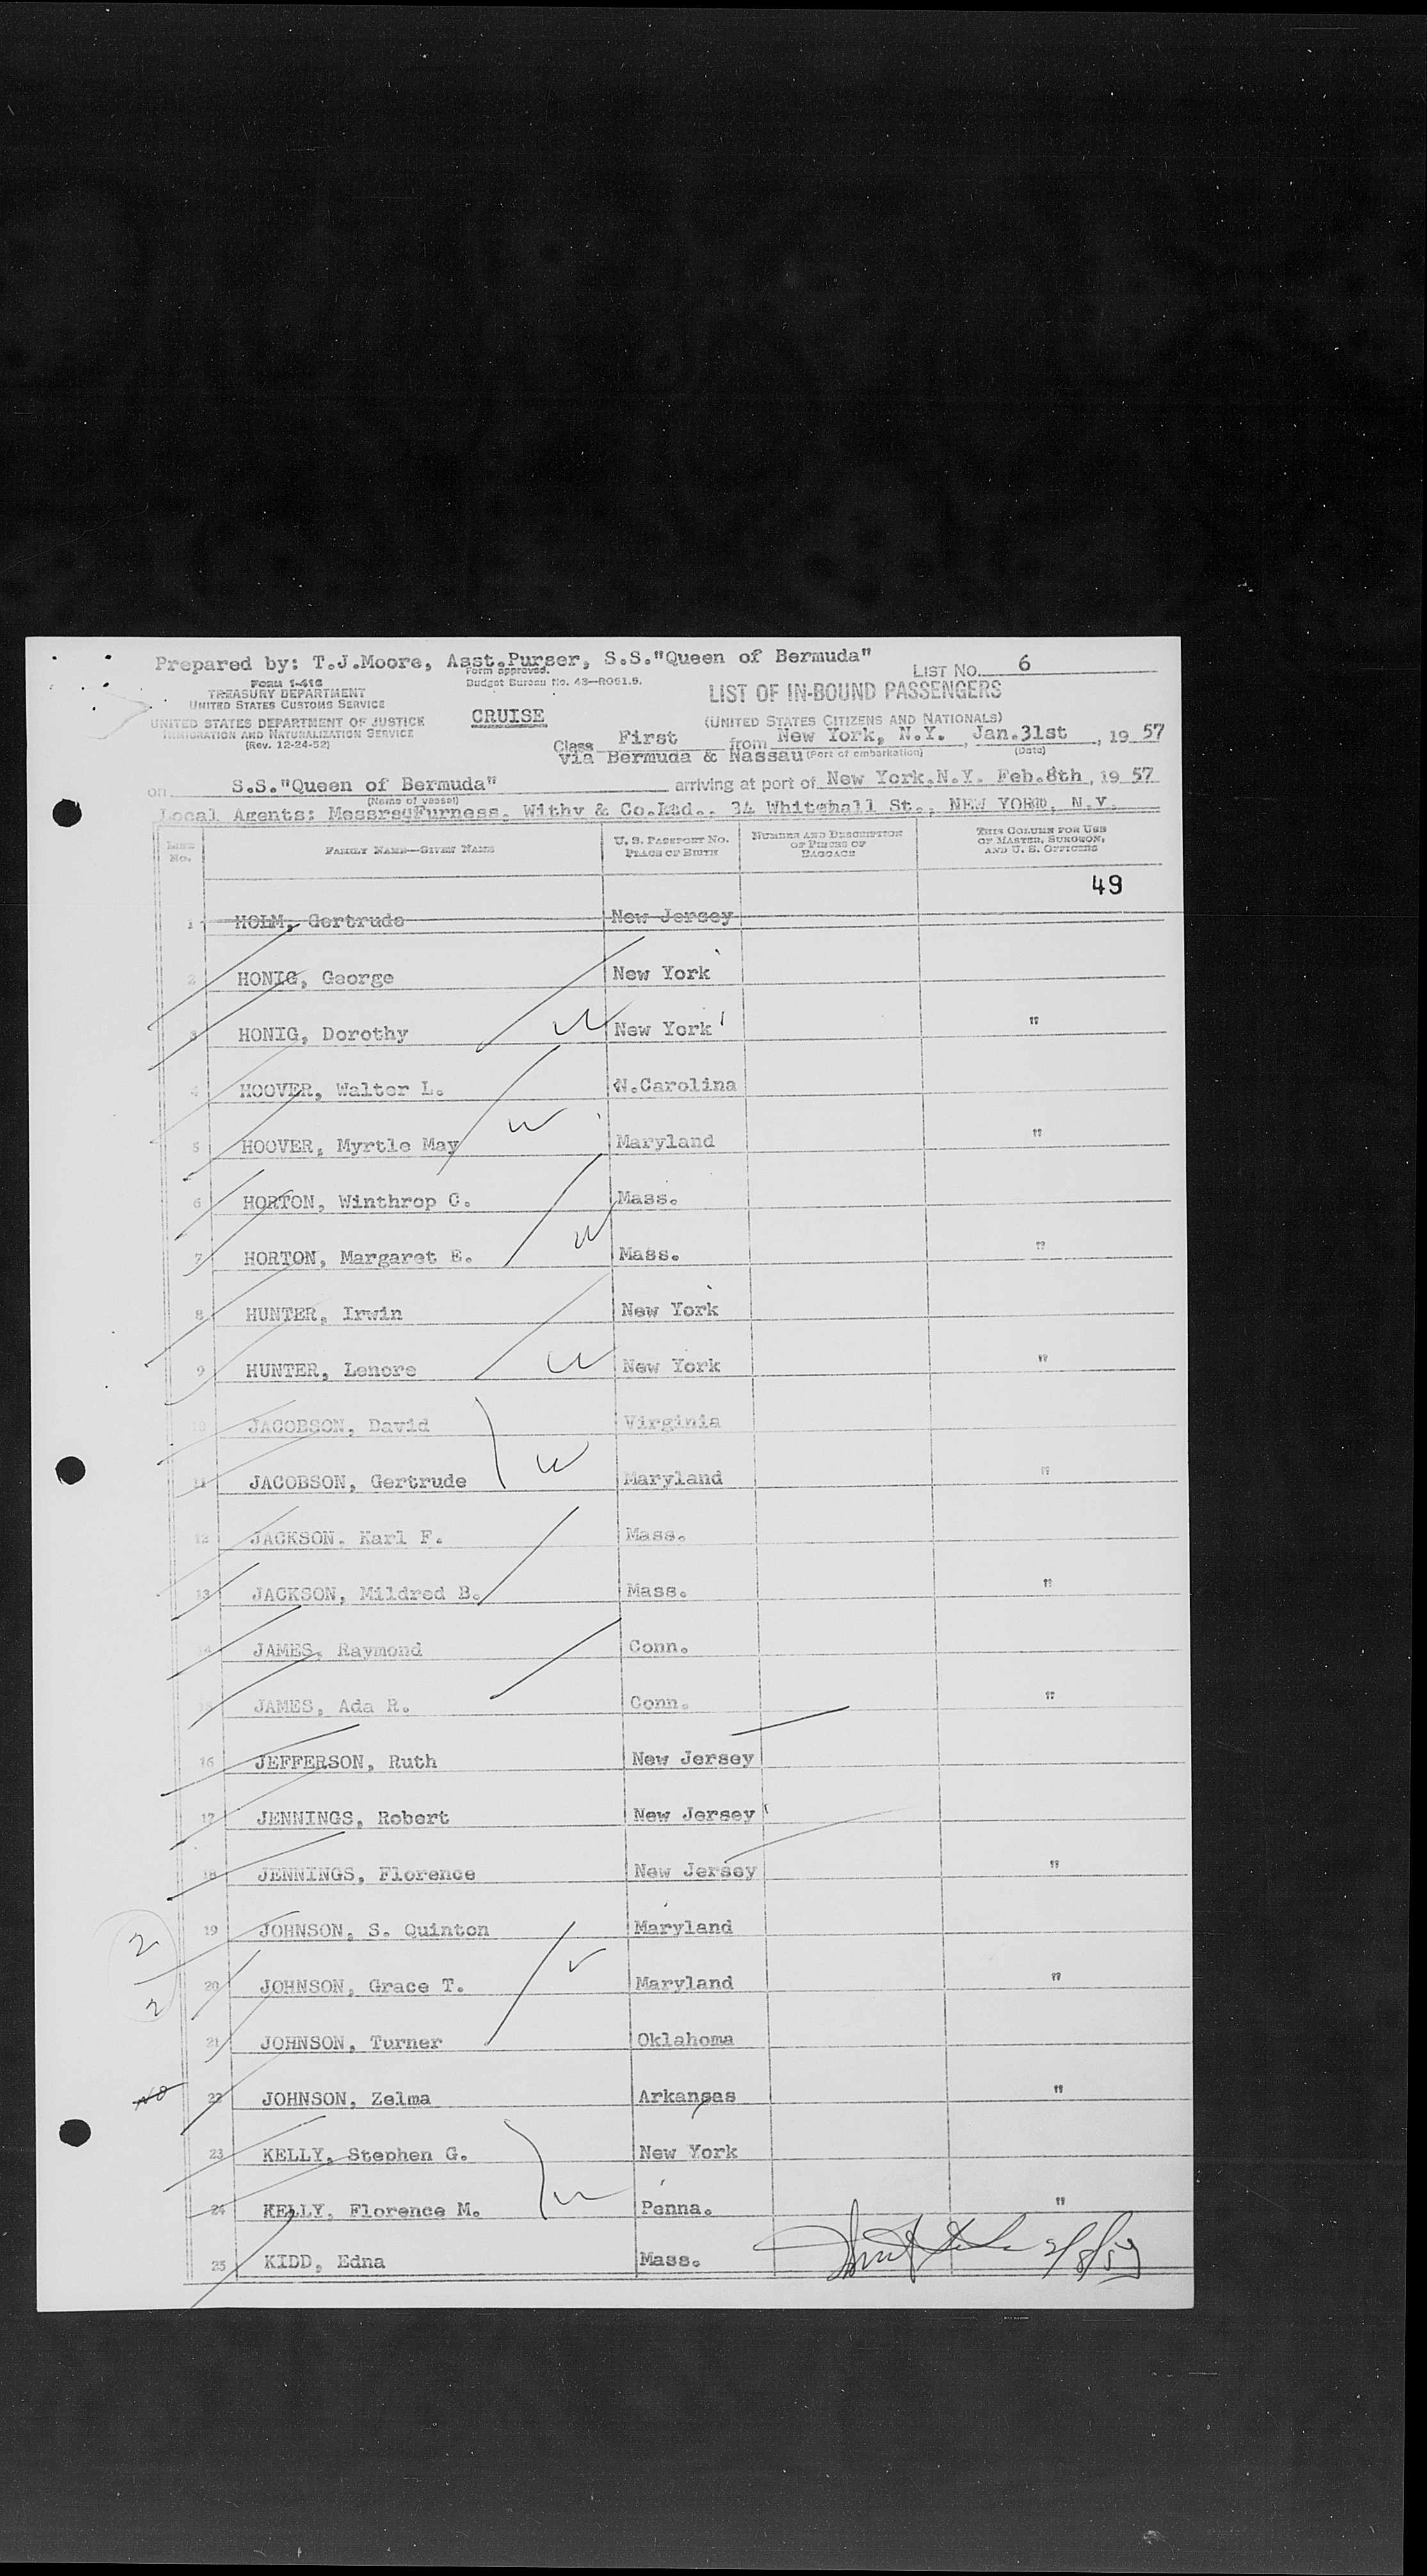 Prepared by: T.J.Moore, Asst.Purser, S.S."Queen of Bermuda"
LIST No. 6
Form I-416
TREASURY DEPARTMENT
UNITED STATES CUSTOMS SERVICE
UNITED STATES DEPARTMENT OF JUSTICE
IMMIGRATION AND NATURALIZATION SERVICE
(Rev. 12-24-52)
Form approved.
Budget Bureau No. 43—R061.5.
CRUISE
LIST OF IN-BOUND PASSENGERS
(UNITED STATES CITIZENS AND NATIONALS)
Class First from New York, N.Y., Jan.31st, 19 57
via Bermuda & Nassau (Port of embarkation) (Date)
on S.S."Queen of Bermuda" arriving at port of New York,N.Y. Feb.8th, 19 57
(Name of vessel)
Local Agents: Messrs Furness, Withy & Co.Ltd., 34 Whitehall St., NEW YORK, N.Y.
LINE No. FAMILY NAME—GIVEN NAME U. S. PASSPORT No. PLACE OF BIRTH NUMBER AND DESCRIPTION OF PIECES OF BAGGAGE THIS COLUMN FOR USE OF MASTER, SURGEON, AND U. S. OFFICERS
49
1 HOLM, Gertrude New Jersey
2 HONIG, George New York
3 HONIG, Dorothy New York "
4 HOOVER, Walter L. N.Carolina
5 HOOVER, Myrtle May Maryland "
6 HORTON, Winthrop C. Mass.
7 HORTON, Margaret E. Mass. "
8 HUNTER, Irwin New York
9 HUNTER, Lenore New York "
10 JACOBSON, David Virginia
11 JACOBSON, Gertrude Maryland "
12 JACKSON. Karl F. Mass.
13 JACKSON, Mildred B. Mass. "
14 JAMES, Raymond Conn.
15 JAMES, Ada R. Conn. "
16 JEFFERSON, Ruth New Jersey
17 JENNINGS, Robert New Jersey
18 JENNINGS, Florence New Jersey "
19 JOHNSON, S. Quinton Maryland
2
20 JOHNSON, Grace T. Maryland "
2
21 JOHNSON, Turner Oklahoma
22 JOHNSON, Zelma Arkansas "
23 KELLY, Stephen G. New York
24 KELLY, Florence M. Penna. "
25 KIDD, Edna Mass. 2/8/57